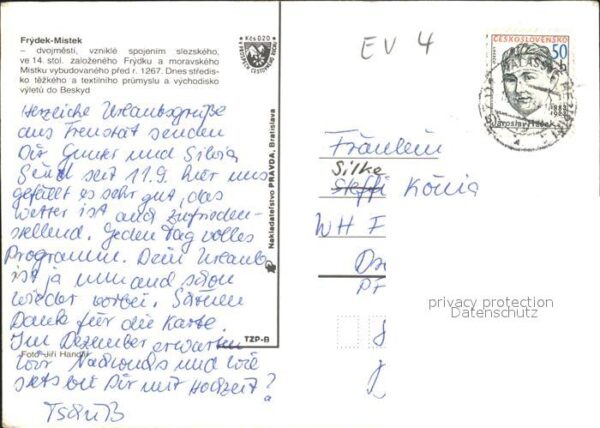 Frýdek-Místek
– dvojměstí, vzniklé spojením slezského,
ve 14. stol. založeného Frýdku a moravského
Místku vybudovaného před r. 1267. Dnes středis-
ko těžkého a textilního průmyslu a východisko
výletů do Beskyd
Kčs 0,20
Herzliche Urlaubsgrüße
aus Frenstát senden
Dir Gunter und Silvia
Sind seit 11.9. hier uns
gefällt es sehr gut, das
Wetter ist auch zufrieden-
stellend. Jeden Tag volles
Programm. Dein Urlaub
ist ja nun auch schon
wieder vorbei. Schönen
Dank für die Karte.
Im Dezember erwarten
wir Nachwuchs und wie
steht bei Dir mit Hochzeit?
Tschüß
Foto Jiří
Nakladatelství PRAVDA, Bratislava
TZP-B
EV 4
ČESKOSLOVENSKO
50
h
1883
Jaroslav Hašek
Fräulein
Silke
Steffi König
WH F
PF
privacy protection
Datenschutz